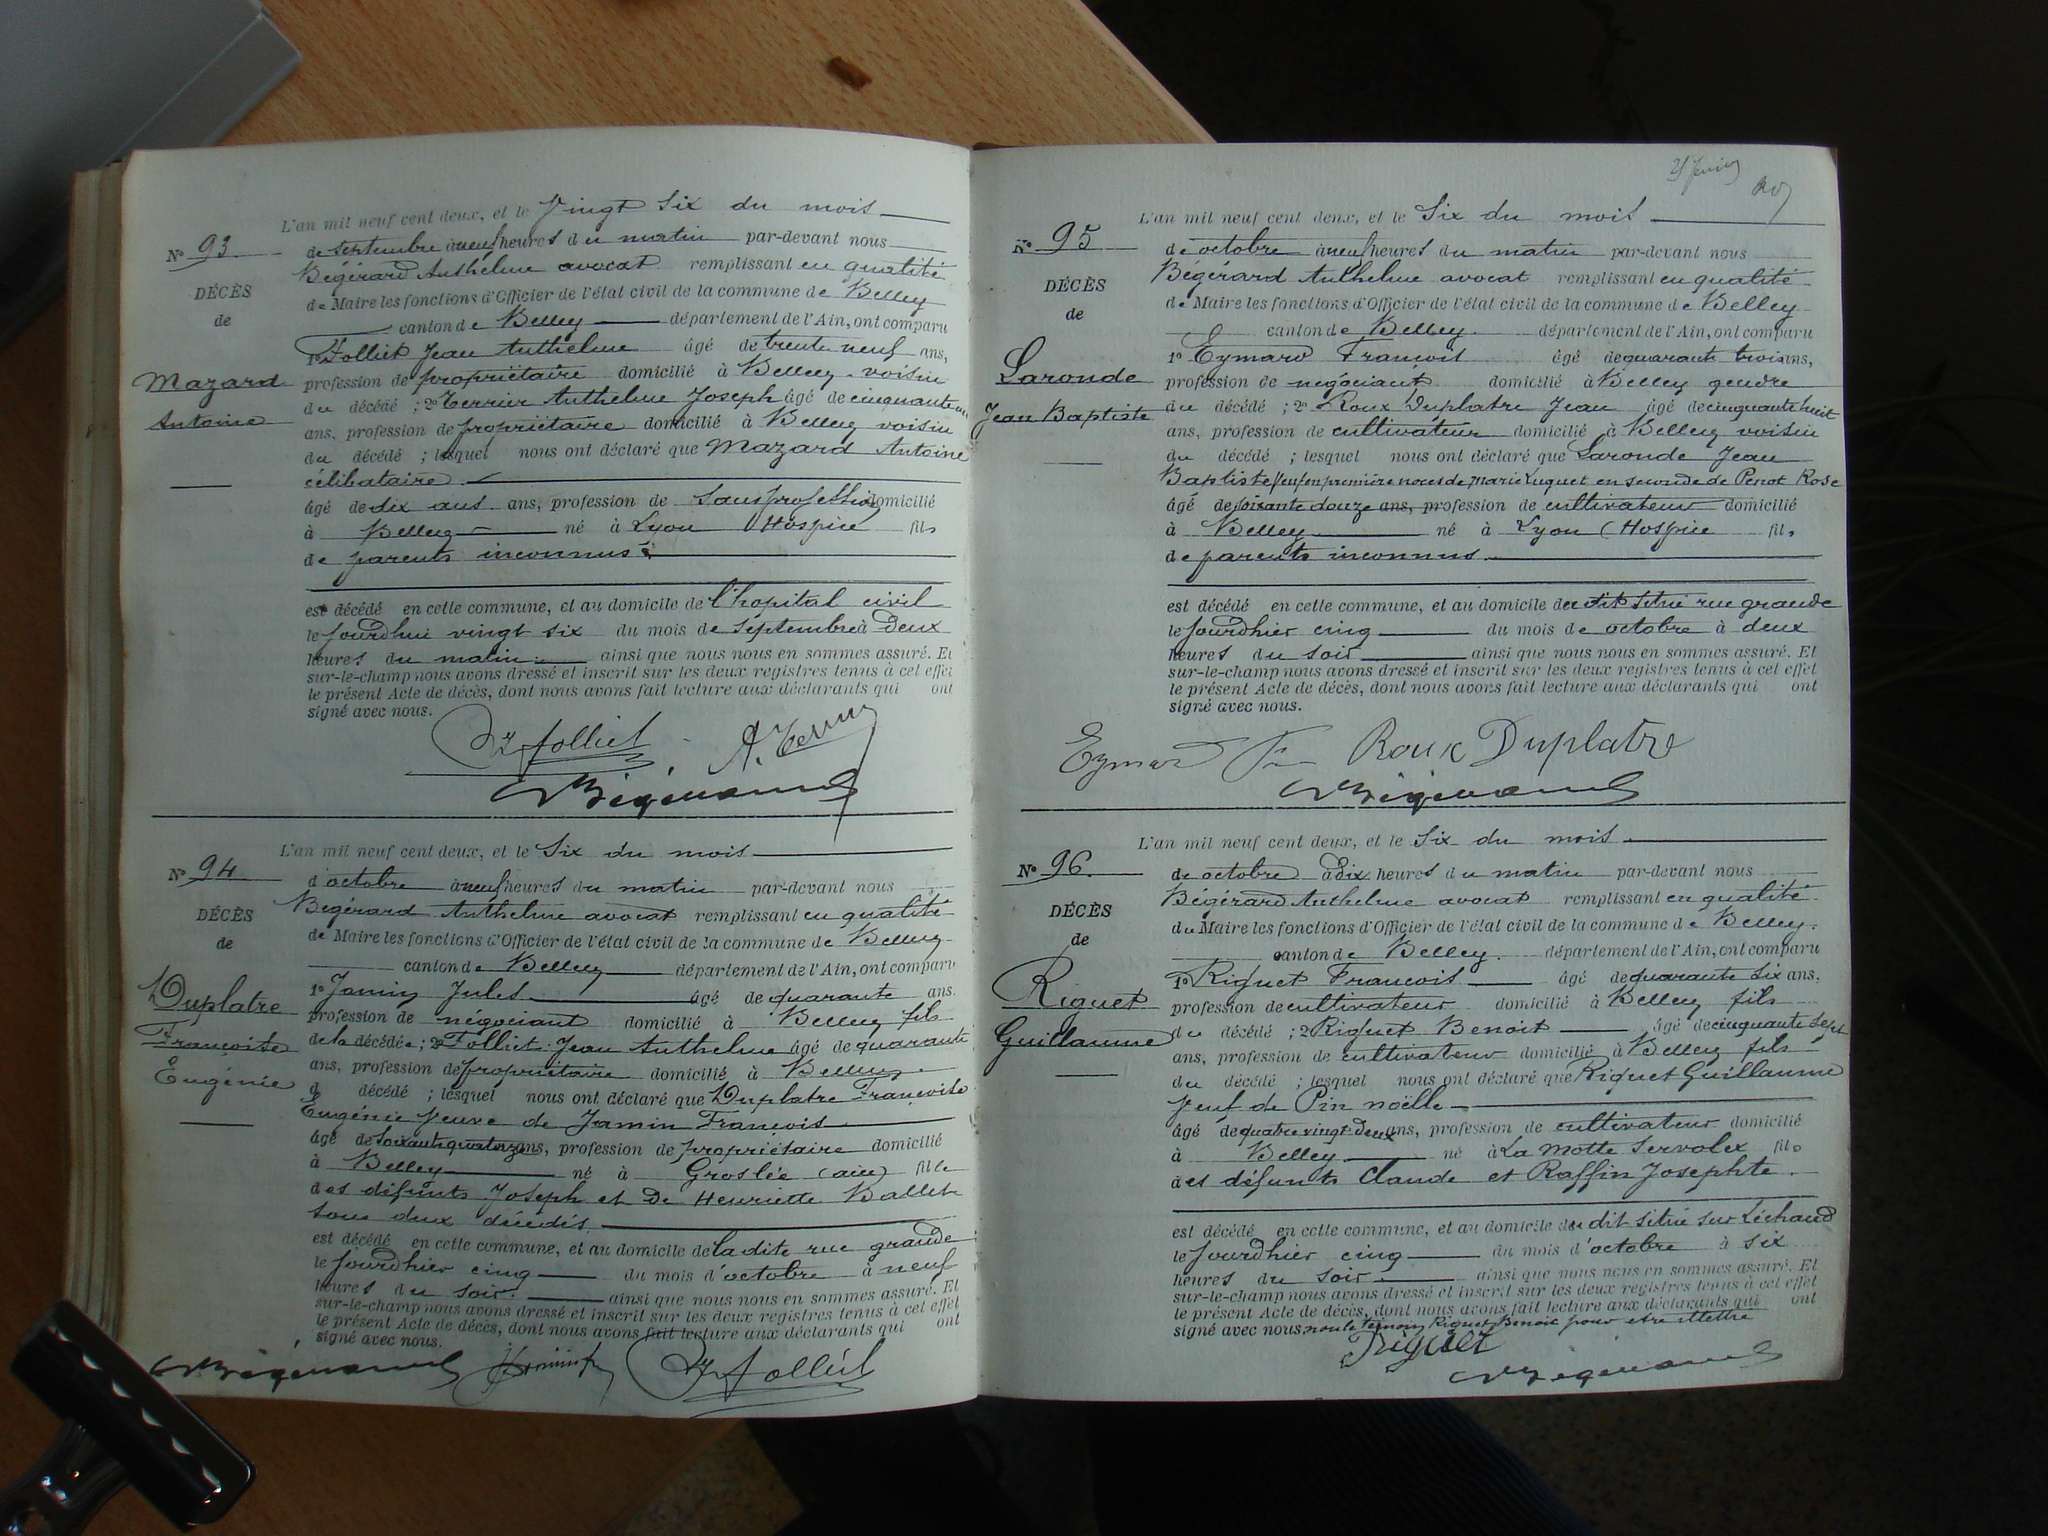 L'an mil neuf cent deux, et le Vingt six du mois
N° 93
de septembre à neuf heures du matin par-devant nous
Bégérard Anthelme avocat remplissant en qualité
DÉCÈS
de Maire les fonctions d'Officier de l'état civil de la commune de Belley
de
canton de Belley département de l'Ain, ont comparu
1° Folliet Jean Anthelme âgé de trente neuf ans,
Mazard
profession de propriétaire domicilié à Belley voisin
Antoine
du décédé ; 2° Terrier Anthelme Joseph âgé de cinquante
ans, profession de propriétaire domicilié à Belley voisin
du décédé ; lesquel nous ont déclaré que Mazard Antoine
célibataire
âgé de six ans ans, profession de sans profession domicilié
à Belley né à Lyon Hospice fils
de parents inconnus
est décédé en cette commune, et au domicile de l'hopital civil
le jourdhui vingt six du mois de septembre à deux
heures du matin ainsi que nous nous en sommes assuré. Et
sur-le-champ nous avons dressé et inscrit sur les deux registres tenus à cet effet
le présent Acte de décès, dont nous avons fait lecture aux déclarants qui ont
signé avec nous.
Folliet
L'an mil neuf cent deux, et le Six du mois
N° 94
d'octobre à neuf heures du matin par-devant nous
Bégérard Anthelme avocat remplissant en qualité
DÉCÈS
de Maire les fonctions d'Officier de l'état civil de la commune de Belley
de
canton de Belley département de l'Ain, ont comparu
1° Jamin Jules âgé de quarante ans.
Duplatre
profession de négociant domicilié à Belley fils
Françoise
de la décédée ; 2° Folliet Jean Anthelme âgé de quarante
Eugénie
ans, profession de propriétaire domicilié à Belley
d décédé ; lesquel nous ont déclaré que Duplatre Françoise
Eugénie Veuve de Jamin François
âgé de soixante quatorze ans, profession de propriétaire domicilié
à Belley né à Groslée (ain) fille
des défunts Joseph et De Henriette Ballet
tous deux décédés
est décédé en cette commune, et au domicile de ladite rue grande
le jourdhier cinq du mois d'octobre à neuf
heures du soir ainsi que nous nous en sommes assuré. Et
sur-le-champ nous avons dressé et inscrit sur les deux registres tenus à cet effet
le présent Acte de décès, dont nous avons fait lecture aux déclarants qui ont
signé avec nous.
Folliet
L'an mil neuf cent deux, et le Six du mois
N° 95
de octobre à neuf heures du matin par-devant nous
Bégérard Anthelme avocat remplissant en qualité
DÉCÈS
de Maire les fonctions d'Officier de l'état civil de la commune de Belley
de
canton de Belley département de l'Ain, ont comparu
1° Eymard François âgé de quarante trois ans,
Laronde
profession de négociant domicilié à Belley gendre
Jean Baptiste
du décédé ; 2° Roux Duplatre Jean âgé de cinquante huit
ans, profession de cultivateur domicilié à Belley voisin
du décédé ; lesquel nous ont déclaré que Laronde Jean
Baptiste Veuf en première noces de Marie Luquet en seconde de Penot Rose
âgé de soixante douze ans, profession de cultivateur domicilié
à Belley né à Lyon (Hospice fils
de parents inconnus
est décédé en cette commune, et au domicile du dit situé rue grande
le jourdhier cinq du mois de octobre à deux
heures du soir ainsi que nous nous en sommes assuré. Et
sur-le-champ nous avons dressé et inscrit sur les deux registres tenus à cet effet
le présent Acte de décès, dont nous avons fait lecture aux déclarants qui ont
signé avec nous.
Eymard Roux Duplatre
L'an mil neuf cent deux, et le Six du mois
N° 96.
de octobre à dix heures du matin par-devant nous
Bégérard Anthelme avocat remplissant en qualité
DÉCÈS
du Maire les fonctions d'Officier de l'état civil de la commune de Belley.
de
canton de Belley. département de l'Ain, ont comparu
1° Riguet François âgé de quarante six ans,
Riguet
profession de cultivateur domicilié à Belley fils
Guillaume
du décédé ; 2° Riguet Benoit âgé de cinquante sept
ans, profession de cultivateur domicilié à Belley fils
du décédé ; lesquel nous ont déclaré que Riguet Guillaume
Veuf de Pin noëlle
âgé de quatre vingt deux ans, profession de cultivateur domicilié
à Belley né à La Motte Servolex fils
des défunts Claude et Raffin Josephte.
est décédé en cette commune, et au domicile du dit situé sur Léchaud
le jourdhier cinq du mois d'octobre à six
heures du soir ainsi que nous nous en sommes assuré. Et
sur-le-champ nous avons dressé et inscrit sur les deux registres tenus à cet effet
le présent Acte de décès, dont nous avons fait lecture aux déclarants qui ont
signé avec nous non le témoin Riguet Benoit pour etre illettré
Riguet